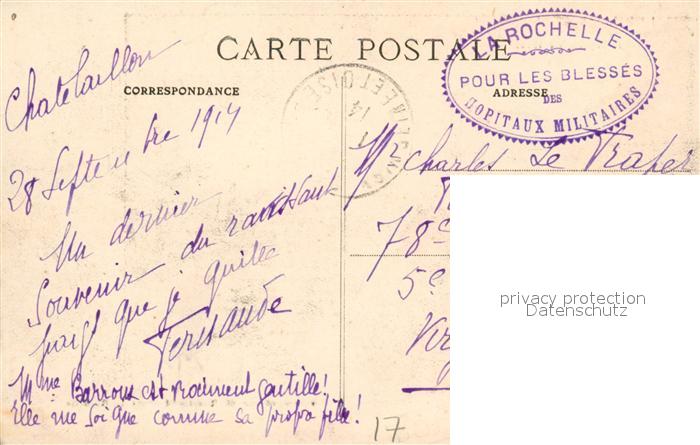 CARTE POSTALE
CORRESPONDANCE
ADRESSE
LA ROCHELLE
POUR LES BLESSÉS
DES
HOPITAUX MILITAIRES
Chatelaillon
28 Septembre 1914
Un dernier
Souvenir du ravissant
que je quitte
Fernande
Mme Barroux est vraiment gentille!
Elle me soigne comme sa propre fille!
Mr Charles Le
78e
5e
17
privacy protection
Datenschutz